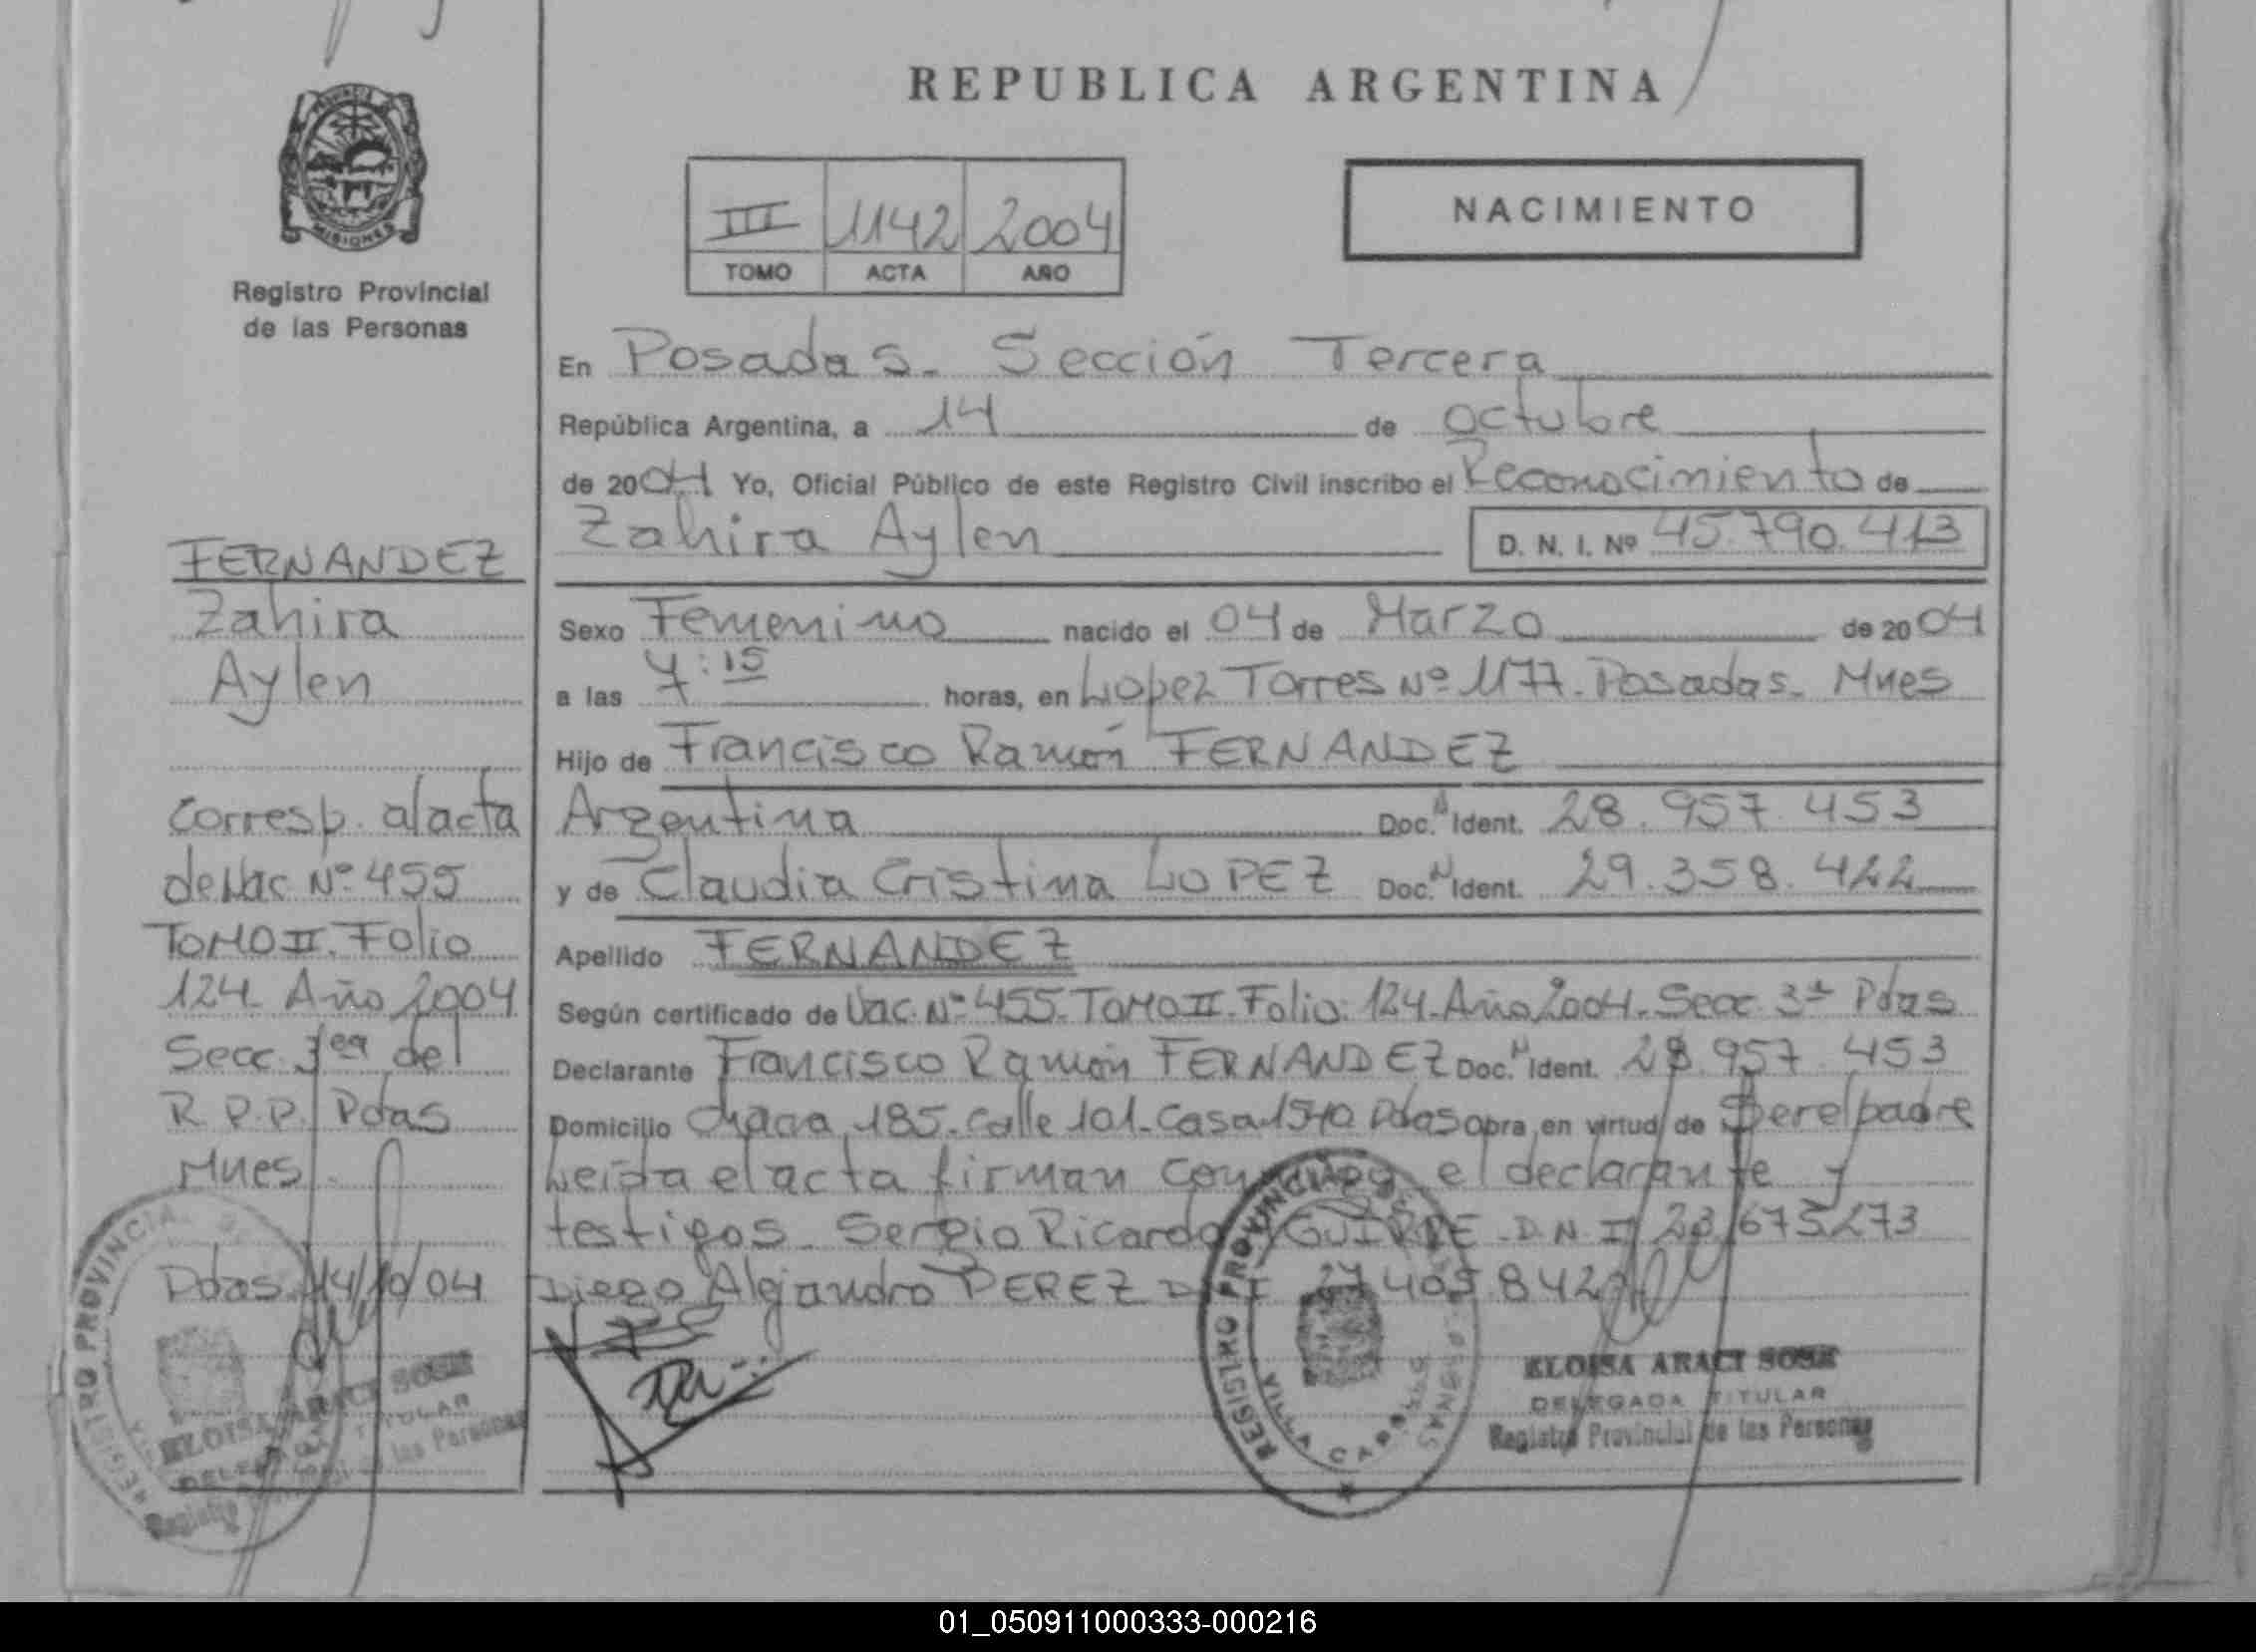 REPUBLICA ARGENTINA
MISIONES
Registro Provincial
de las Personas
III 1142 2004
TOMO ACTA AÑO
NACIMIENTO
En Posadas. Sección Tercera
República Argentina, a 14 de octubre
de 2004 Yo, Oficial Público de este Registro Civil inscribo el Reconocimiento de
Zahira Aylen D. N. I. Nº 45.790.413
Sexo Femenino nacido el 04 de Marzo de 2004
a las 7:15 horas, en Lopez Torres Nº 1177. Posadas. Mnes
Hijo de Francisco Ramón FERNANDEZ
Argentina Doc. N Ident. 28.957.453
y de Claudia Cristina LOPEZ Doc. N Ident. 29.358.422
Apellido FERNANDEZ
Según certificado de Nac. Nº 455. TOMO II. Folio: 124. Año 2004. Secc. 3ª Pdas
Declarante Francisco Ramón FERNANDEZ Doc. N Ident. 28.957.453
Domicilio Chacra 185. Calle 101. Casa 1540 Pdas obra en virtud de Ser el padre
Leida el acta firman conmigo el declarante y
testigos. Sergio Ricardo AGUIRRE D.N.I 23.675.273
Diego Alejandro PEREZ DNI 27.405.842
FERNANDEZ
Zahira
Aylen
Corresp. al acta
de Nac. Nº 455
TOMO II. Folio
124. Año 2004
Secc. 3era del
R.P.P. Pdas
Mnes.
Pdas. 14/10/04
REGISTRO PROVINCIAL DE
ELOISA ARACI SOSA
DELEGADA TITULAR
Registro Provincial de las Personas
REGISTRO PROVINCIAL DE LAS PERSONAS
VILLA CABELLO
ELOISA ARACI SOSA
DELEGADA TITULAR
Registro Provincial de las Personas
01_050911000333-000216